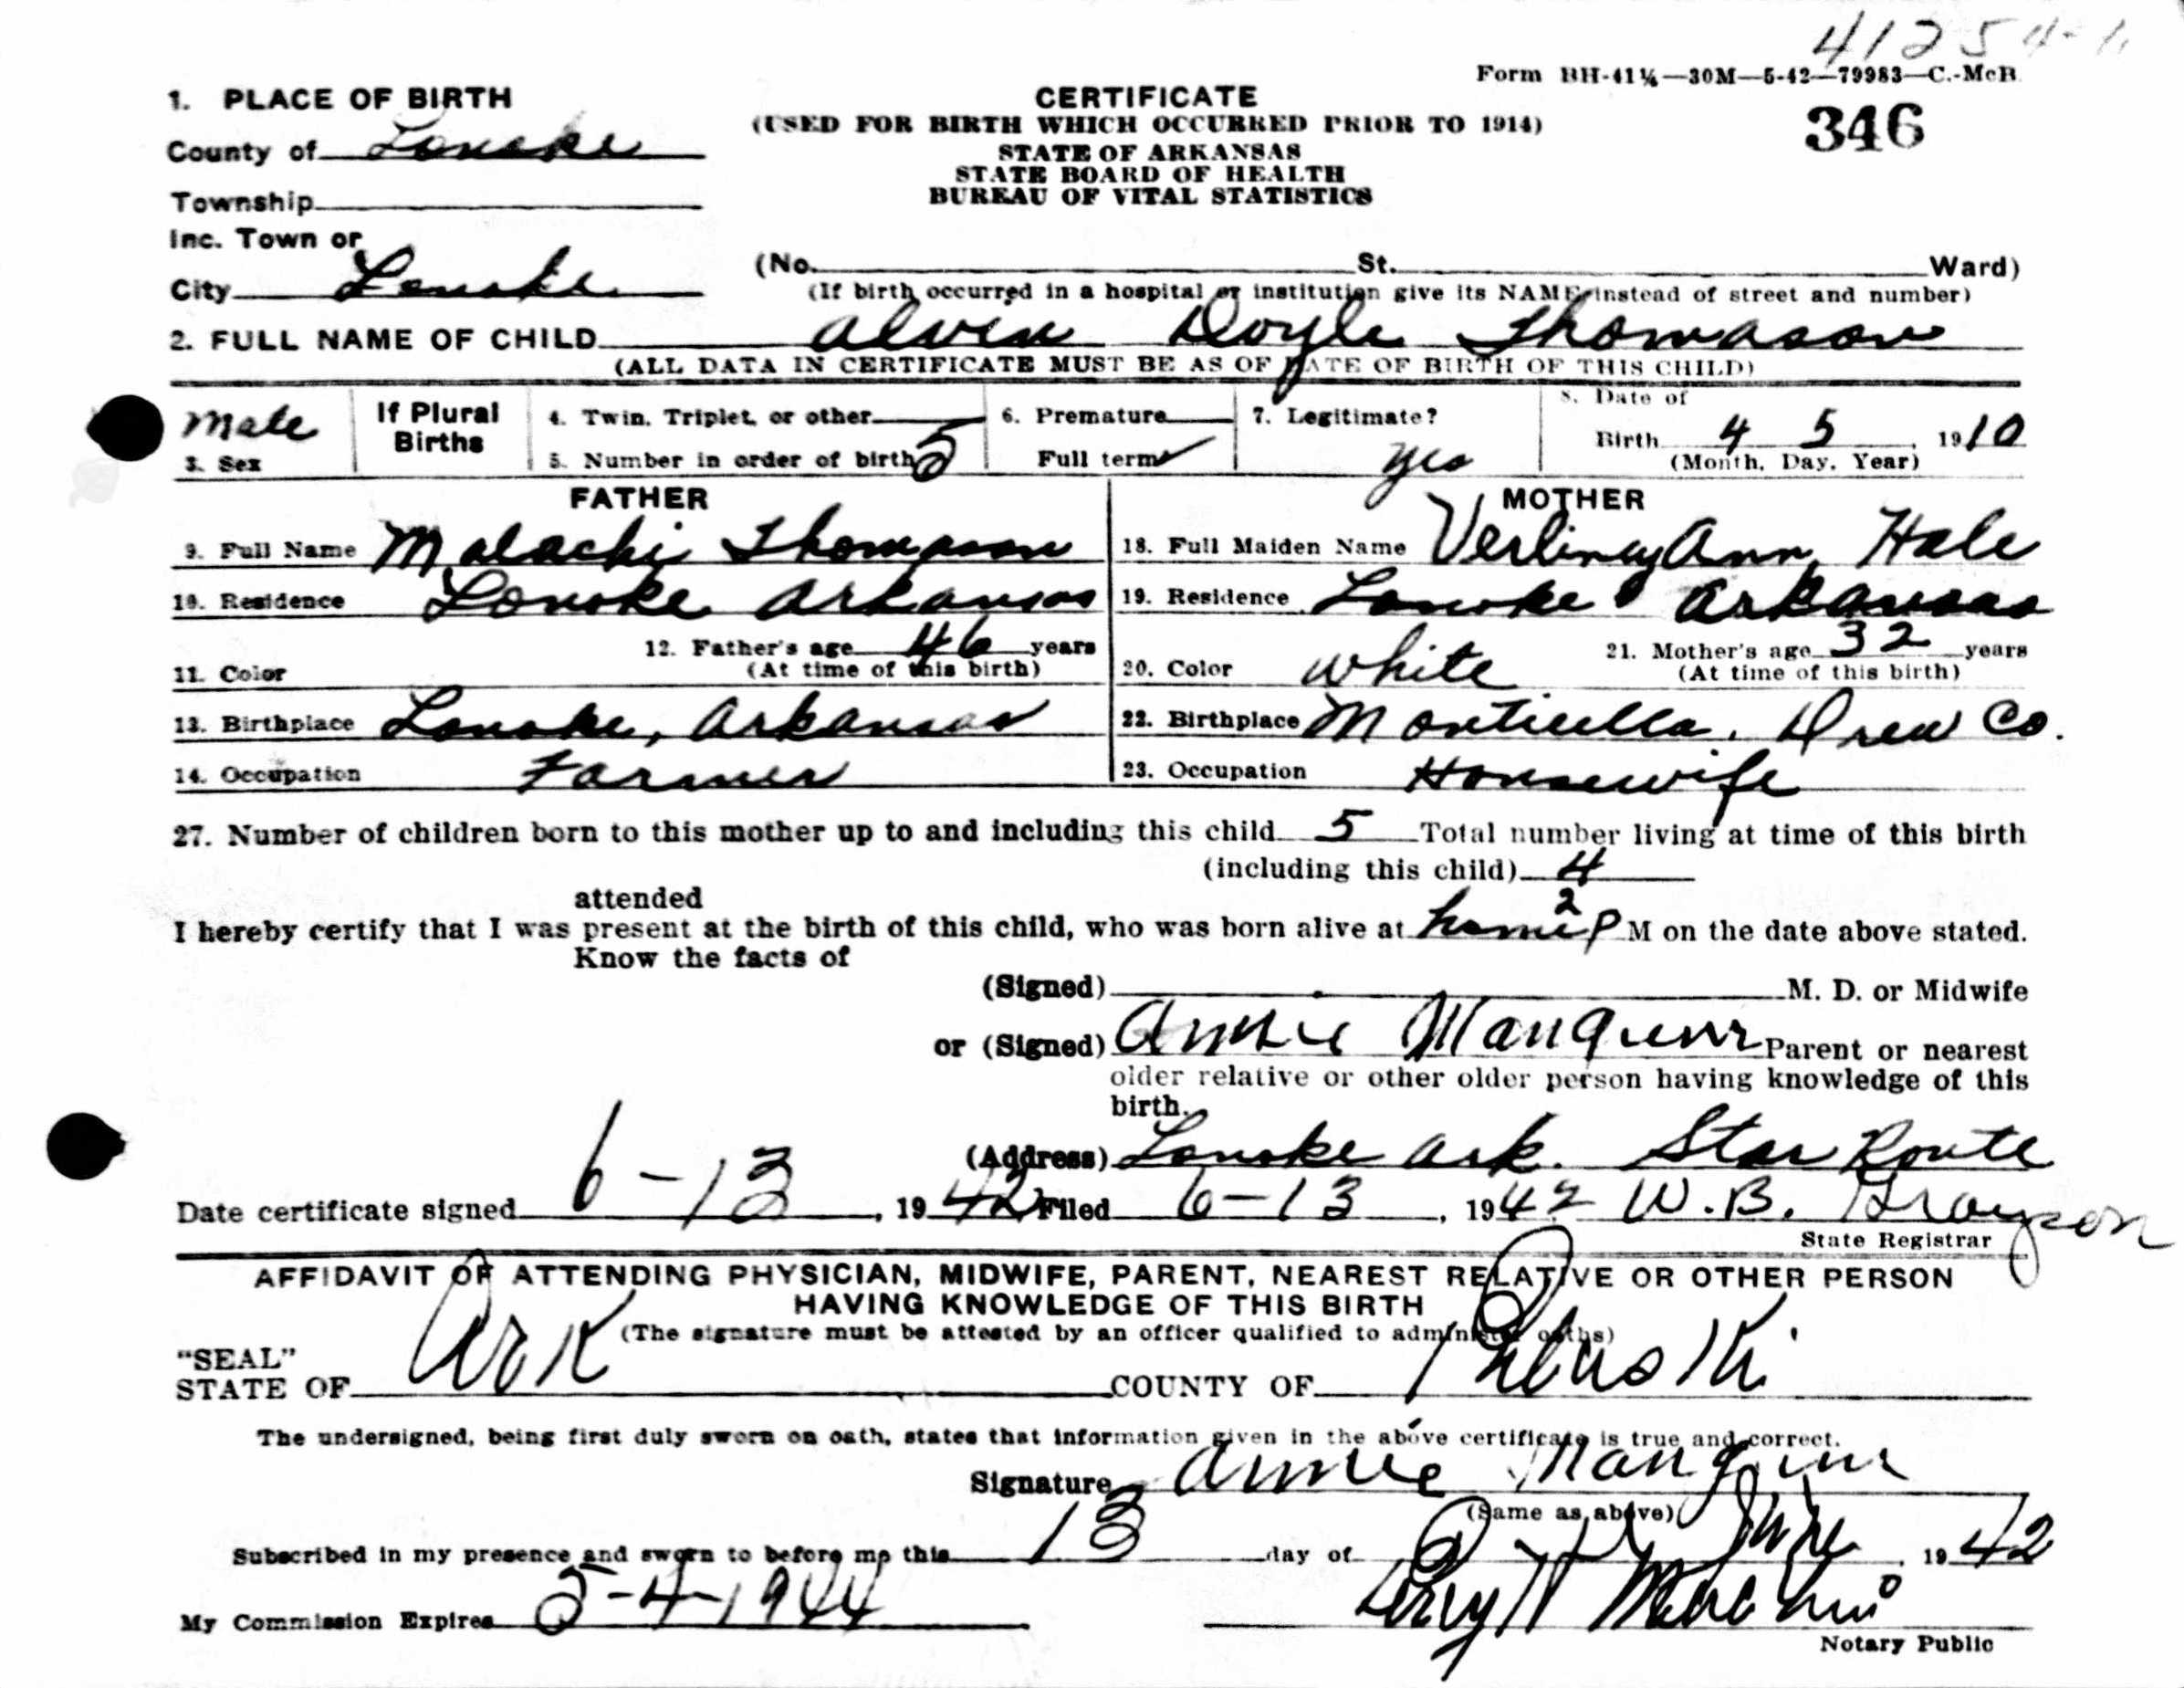 41254-1
Form BH-41¼—30M—5-42—79983—C.-McB
346
CERTIFICATE
(USED FOR BIRTH WHICH OCCURRED PRIOR TO 1914)
STATE OF ARKANSAS
STATE BOARD OF HEALTH
BUREAU OF VITAL STATISTICS
1. PLACE OF BIRTH
County of Lonoke
Township
Inc. Town or
City Lonoke
(No. St. Ward)
(If birth occurred in a hospital or institution give its NAME instead of street and number)
2. FULL NAME OF CHILD Alvin Doyle Thomason
(ALL DATA IN CERTIFICATE MUST BE AS OF DATE OF BIRTH OF THIS CHILD)
Male
3. Sex
If Plural
Births
4. Twin, Triplet, or other
5. Number in order of birth 5
6. Premature
Full term ✓
7. Legitimate?
yes
8. Date of
Birth 4 5, 1910
(Month, Day, Year)
FATHER
9. Full Name Malachi Thomason
10. Residence Lonoke Arkansas
12. Father's age 46 years
11. Color (At time of this birth)
13. Birthplace Lonoke, Arkansas
14. Occupation Farmer
MOTHER
18. Full Maiden Name Ann Hale
19. Residence Lonoke Arkansas
21. Mother's age 32 years
20. Color White (At time of this birth)
22. Birthplace Monticella, Drew Co.
23. Occupation Housewife
27. Number of children born to this mother up to and including this child 5 Total number living at time of this birth
(including this child) 4
attended
I hereby certify that I was present at the birth of this child, who was born alive at home 2 P M on the date above stated.
Know the facts of
(Signed) M. D. or Midwife
or (Signed) Annie Mangum Parent or nearest
older relative or other older person having knowledge of this
birth.
(Address) Lonoke Ark. Star Route
Date certificate signed 6-13, 1942 Filed 6-13, 1942 W.B. Grayson
State Registrar
AFFIDAVIT OF ATTENDING PHYSICIAN, MIDWIFE, PARENT, NEAREST RELATIVE OR OTHER PERSON
HAVING KNOWLEDGE OF THIS BIRTH
(The signature must be attested by an officer qualified to administer oaths)
"SEAL"
STATE OF Ark COUNTY OF Pulaski
The undersigned, being first duly sworn on oath, states that information given in the above certificate is true and correct.
Signature Annie Mangum
(Same as above)
Subscribed in my presence and sworn to before me this 13 day of June, 1942
My Commission Expires 5-4-1944
Notary Public